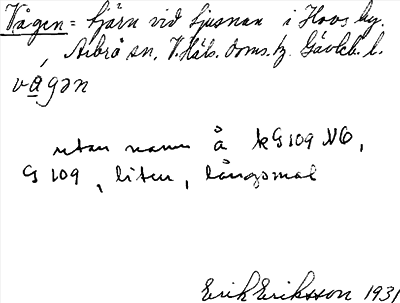 Vågen = tjärn vid Ljusnan i Hovs by.
, Arbrå sn, V. Häls. doms. hz. Gävleb. l.
vagən
utan namn å kG 109 NO,
G 109, liten, långsmal
Erik Eriksson 1931